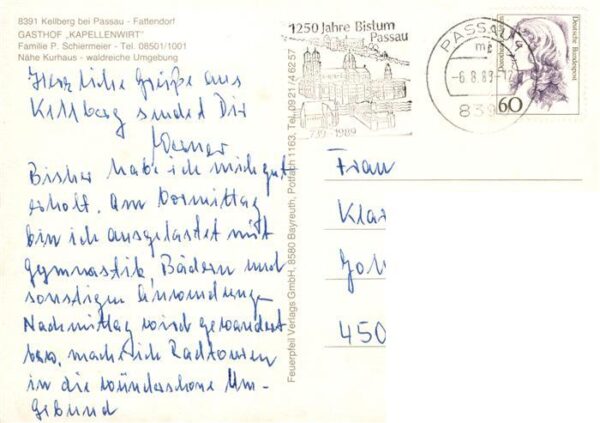 8391 Kellberg bei Passau - Fattendorf
GASTHOF „KAPELLENWIRT"
Familie P. Schiermeier - Tel. 08501/1001
Nähe Kurhaus - waldreiche Umgebung
Herzliche Grüße aus
Kellberg sendet Dir
Werner
Bisher habe ich mich gut
erholt. Am Vormittag
bin ich ausgelastet mit
Gymnastik, Bädern und
sonstigen Anwendungen
Nachmittag wird gewandert
bzw. mache ich Radtouren
in die wunderschöne Um-
gebung
Feuerpfeil Verlags GmbH, 8580 Bayreuth, Postfach 1163, Tel. 0921/46257
1250 Jahre Bistum
Passau
739-1989
PASSAU
-6.8.89-12
839
60
Deutsche Bundespost
Frau
Kla
Joh
450